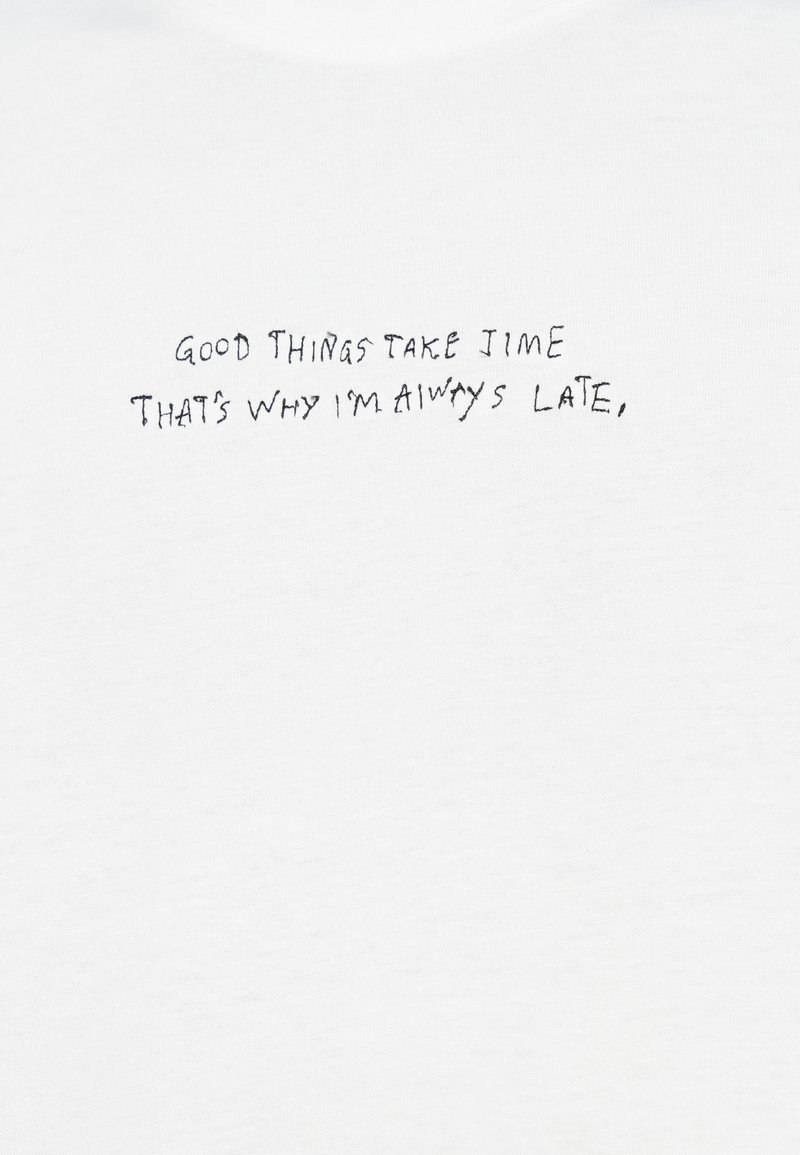 GOOD THINGS TAKE TIME
THAT'S WHY I'M AlWAYS LATE,